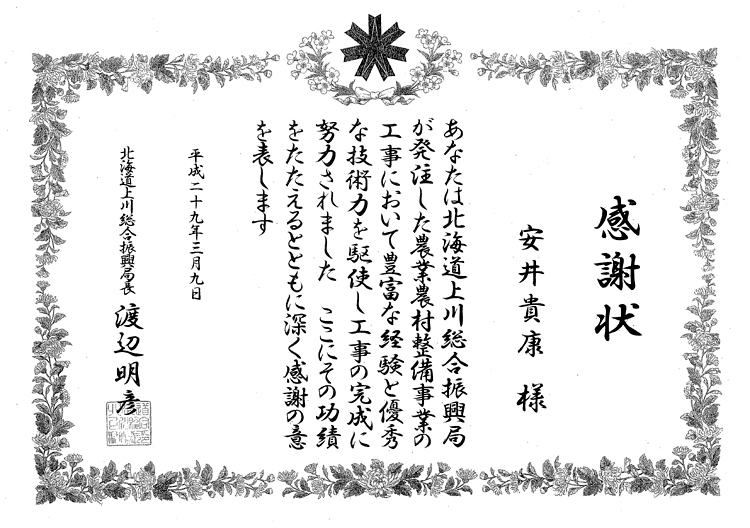 感謝状
安井貴康 様
あなたは北海道上川総合振興局
が発注した農業農村整備事業の
工事において豊富な経験と優秀
な技術力を駆使し工事の完成に
努力されました ここにその功績
をたたえるとともに深く感謝の意
を表します
平成二十九年三月九日
北海道上川総合振興局長 渡辺明彦